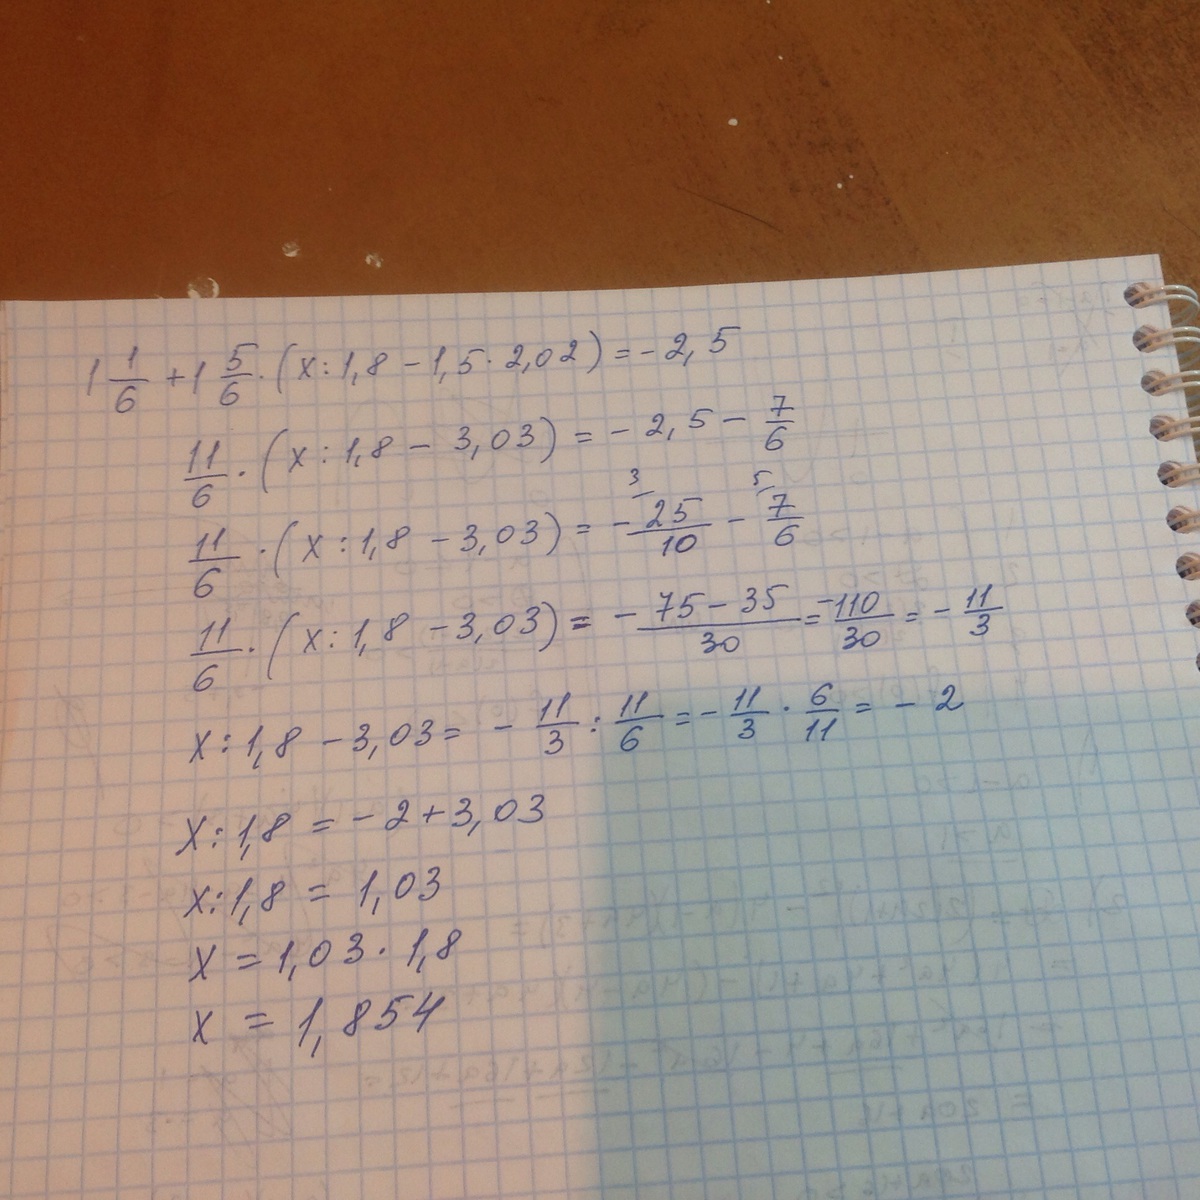 1 1/6 + 1 5/6 · (x : 1,8 − 1,5 · 2,02) = −2,5
11/6 · (x : 1,8 − 3,03) = −2,5 − 7/6
11/6 · (x : 1,8 − 3,03) = − ³⁻25/10 − ⁵⁻7/6
11/6 · (x : 1,8 − 3,03) = − 75 − 35/30 = −110/30 = − 11/3
x : 1,8 − 3,03 = − 11/3 : 11/6 = − 11/3 · 6/11 = − 2
x : 1,8 = − 2 + 3,03
x : 1,8 = 1,03
x = 1,03 · 1,8
x = 1,854